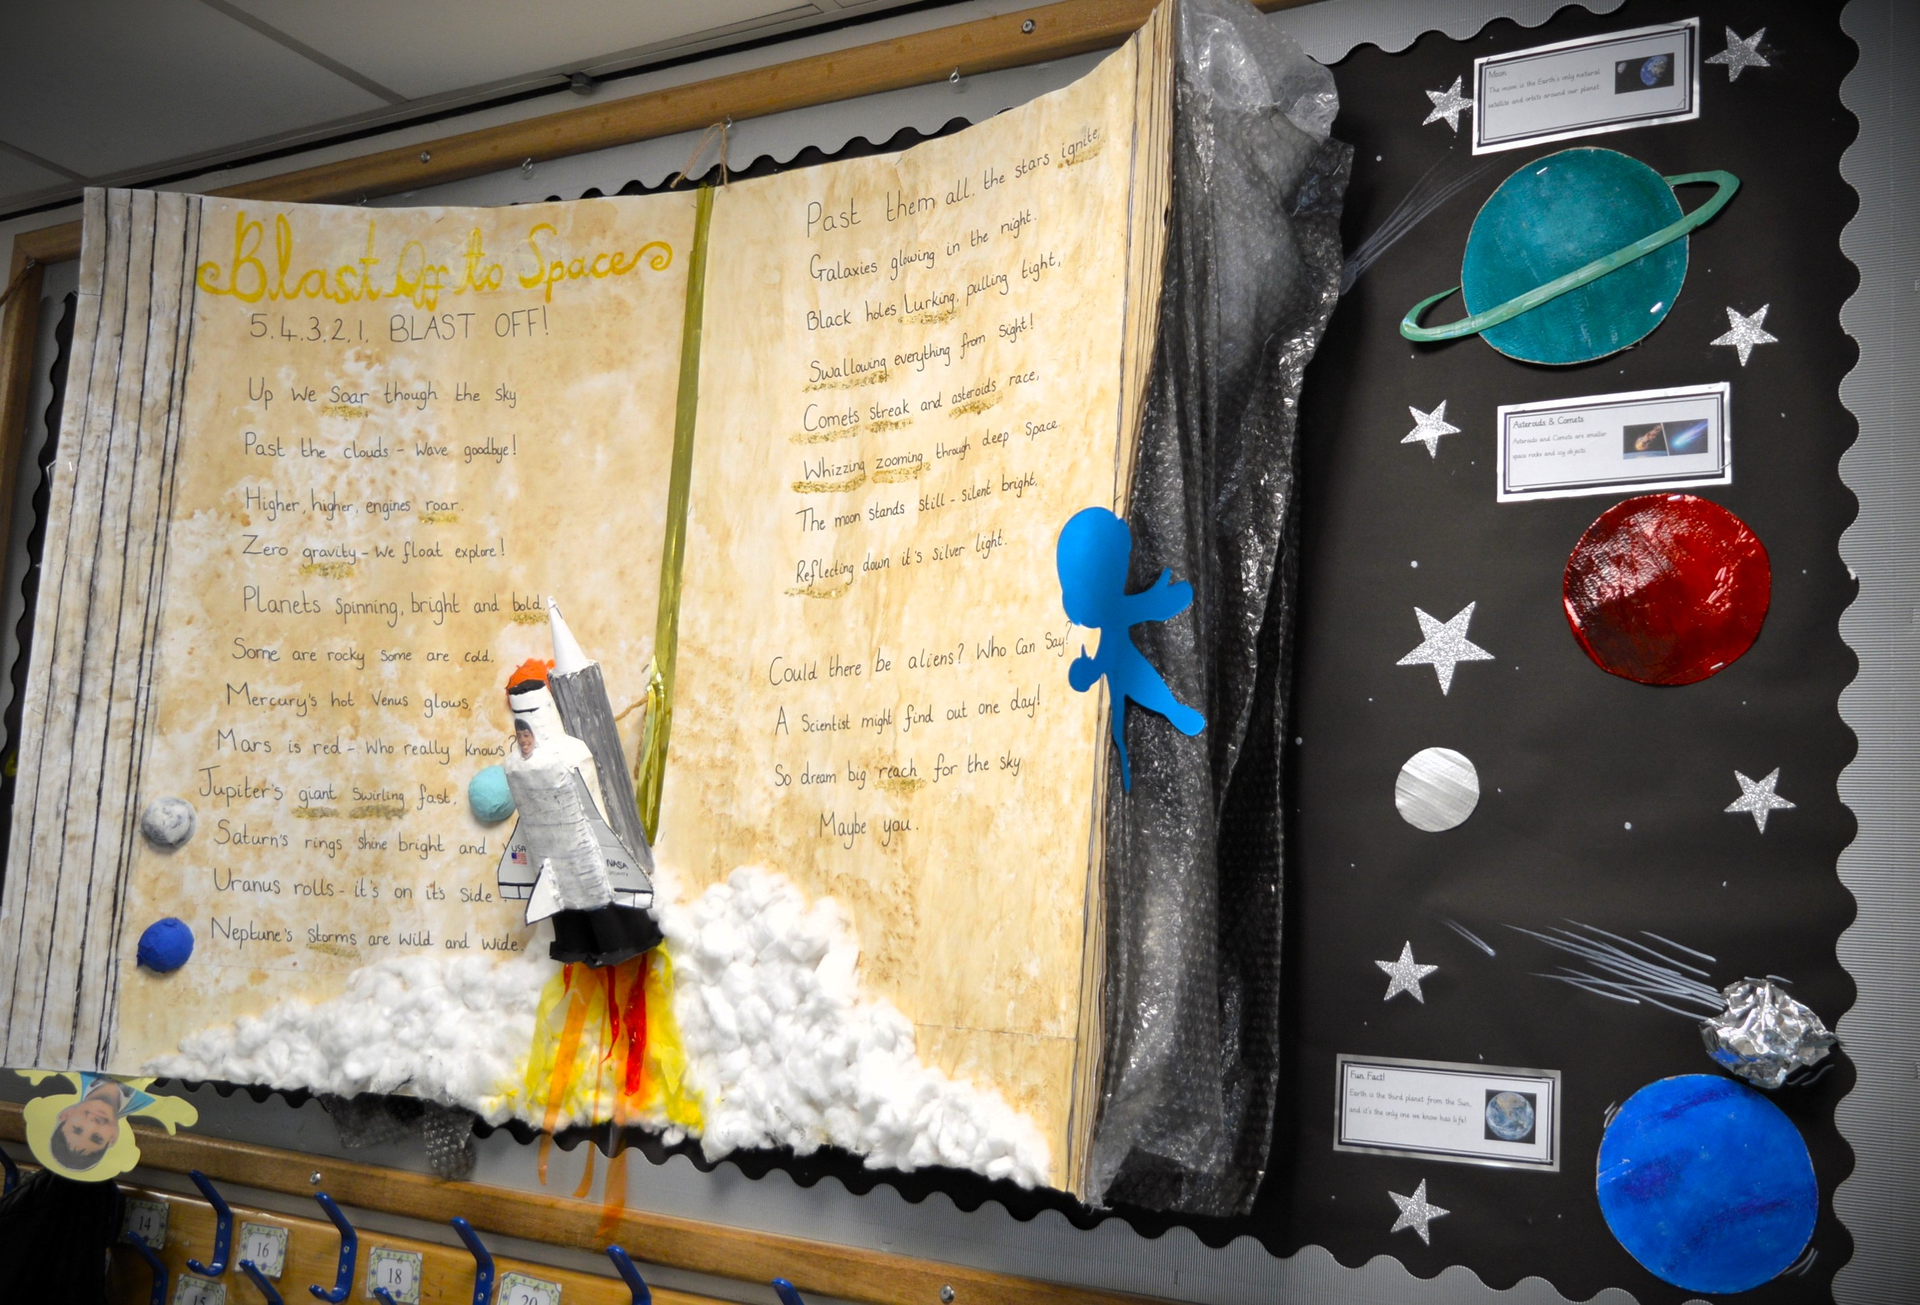 Blast Off to Space
5.4.3.2.1. BLAST OFF!
Up we Soar though the sky
Past the clouds - Wave goodbye!
Higher, higher, engines roar.
Zero gravity - We float explore!
Planets Spinning, bright and bold.
Some are rocky Some are cold.
Mercury's hot Venus glows
Mars is red - Who really knows?
Jupiter's giant Swirling fast.
Saturn's rings Shine bright and
Uranus rolls - it's on it's Side
Neptune's Storms are Wild and Wide.
USA
NASA
Past them all. the stars ignite.
Galaxies glowing in the night.
Black holes Lurking, pulling tight,
Swallowing everything from Sight!
Comets Streak and asteroids race,
Whizzing zooming through deep Space.
The moon stands still - silent bright,
Reflecting down it's silver light.
Could there be aliens? Who Can Say?
A Scientist might find out one day!
So dream big reach for the sky
Maybe you.
Moon
The moon is the Earth's only natural
satellite and orbits around our planet
Asteroids & Comets
Asteroids and Comets are smaller
space rocks and icy objects
Fun Fact!
Earth is the third planet from the Sun,
and it's the only one we know has life!
14
16
18
15
20